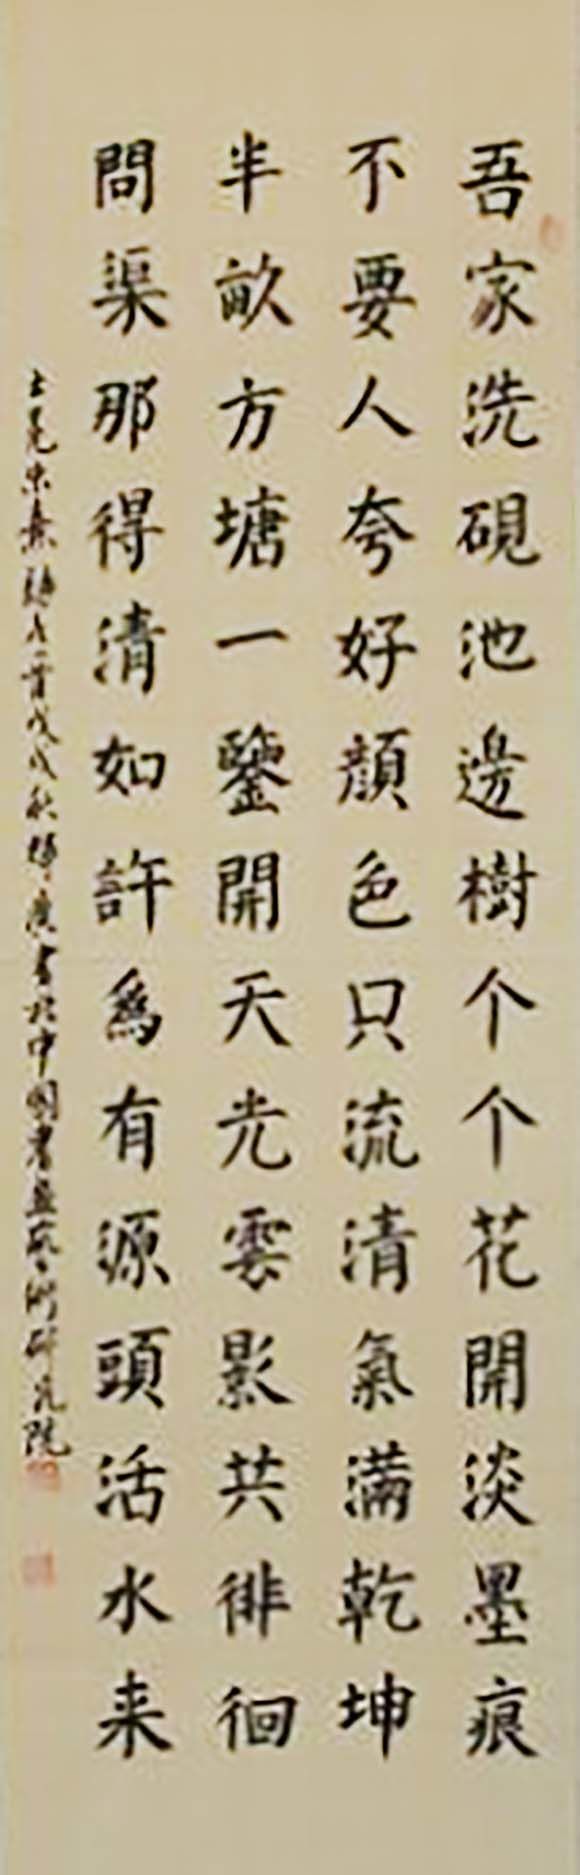 吾家洗硯池邊樹个个花開淡墨痕
不要人夸好顔色只流清氣滿乾坤
半畝方塘一鑒開天光雲影共徘徊
問渠那得清如許為有源頭活水来
戊戌秋 書於中國書畫藝術研究院